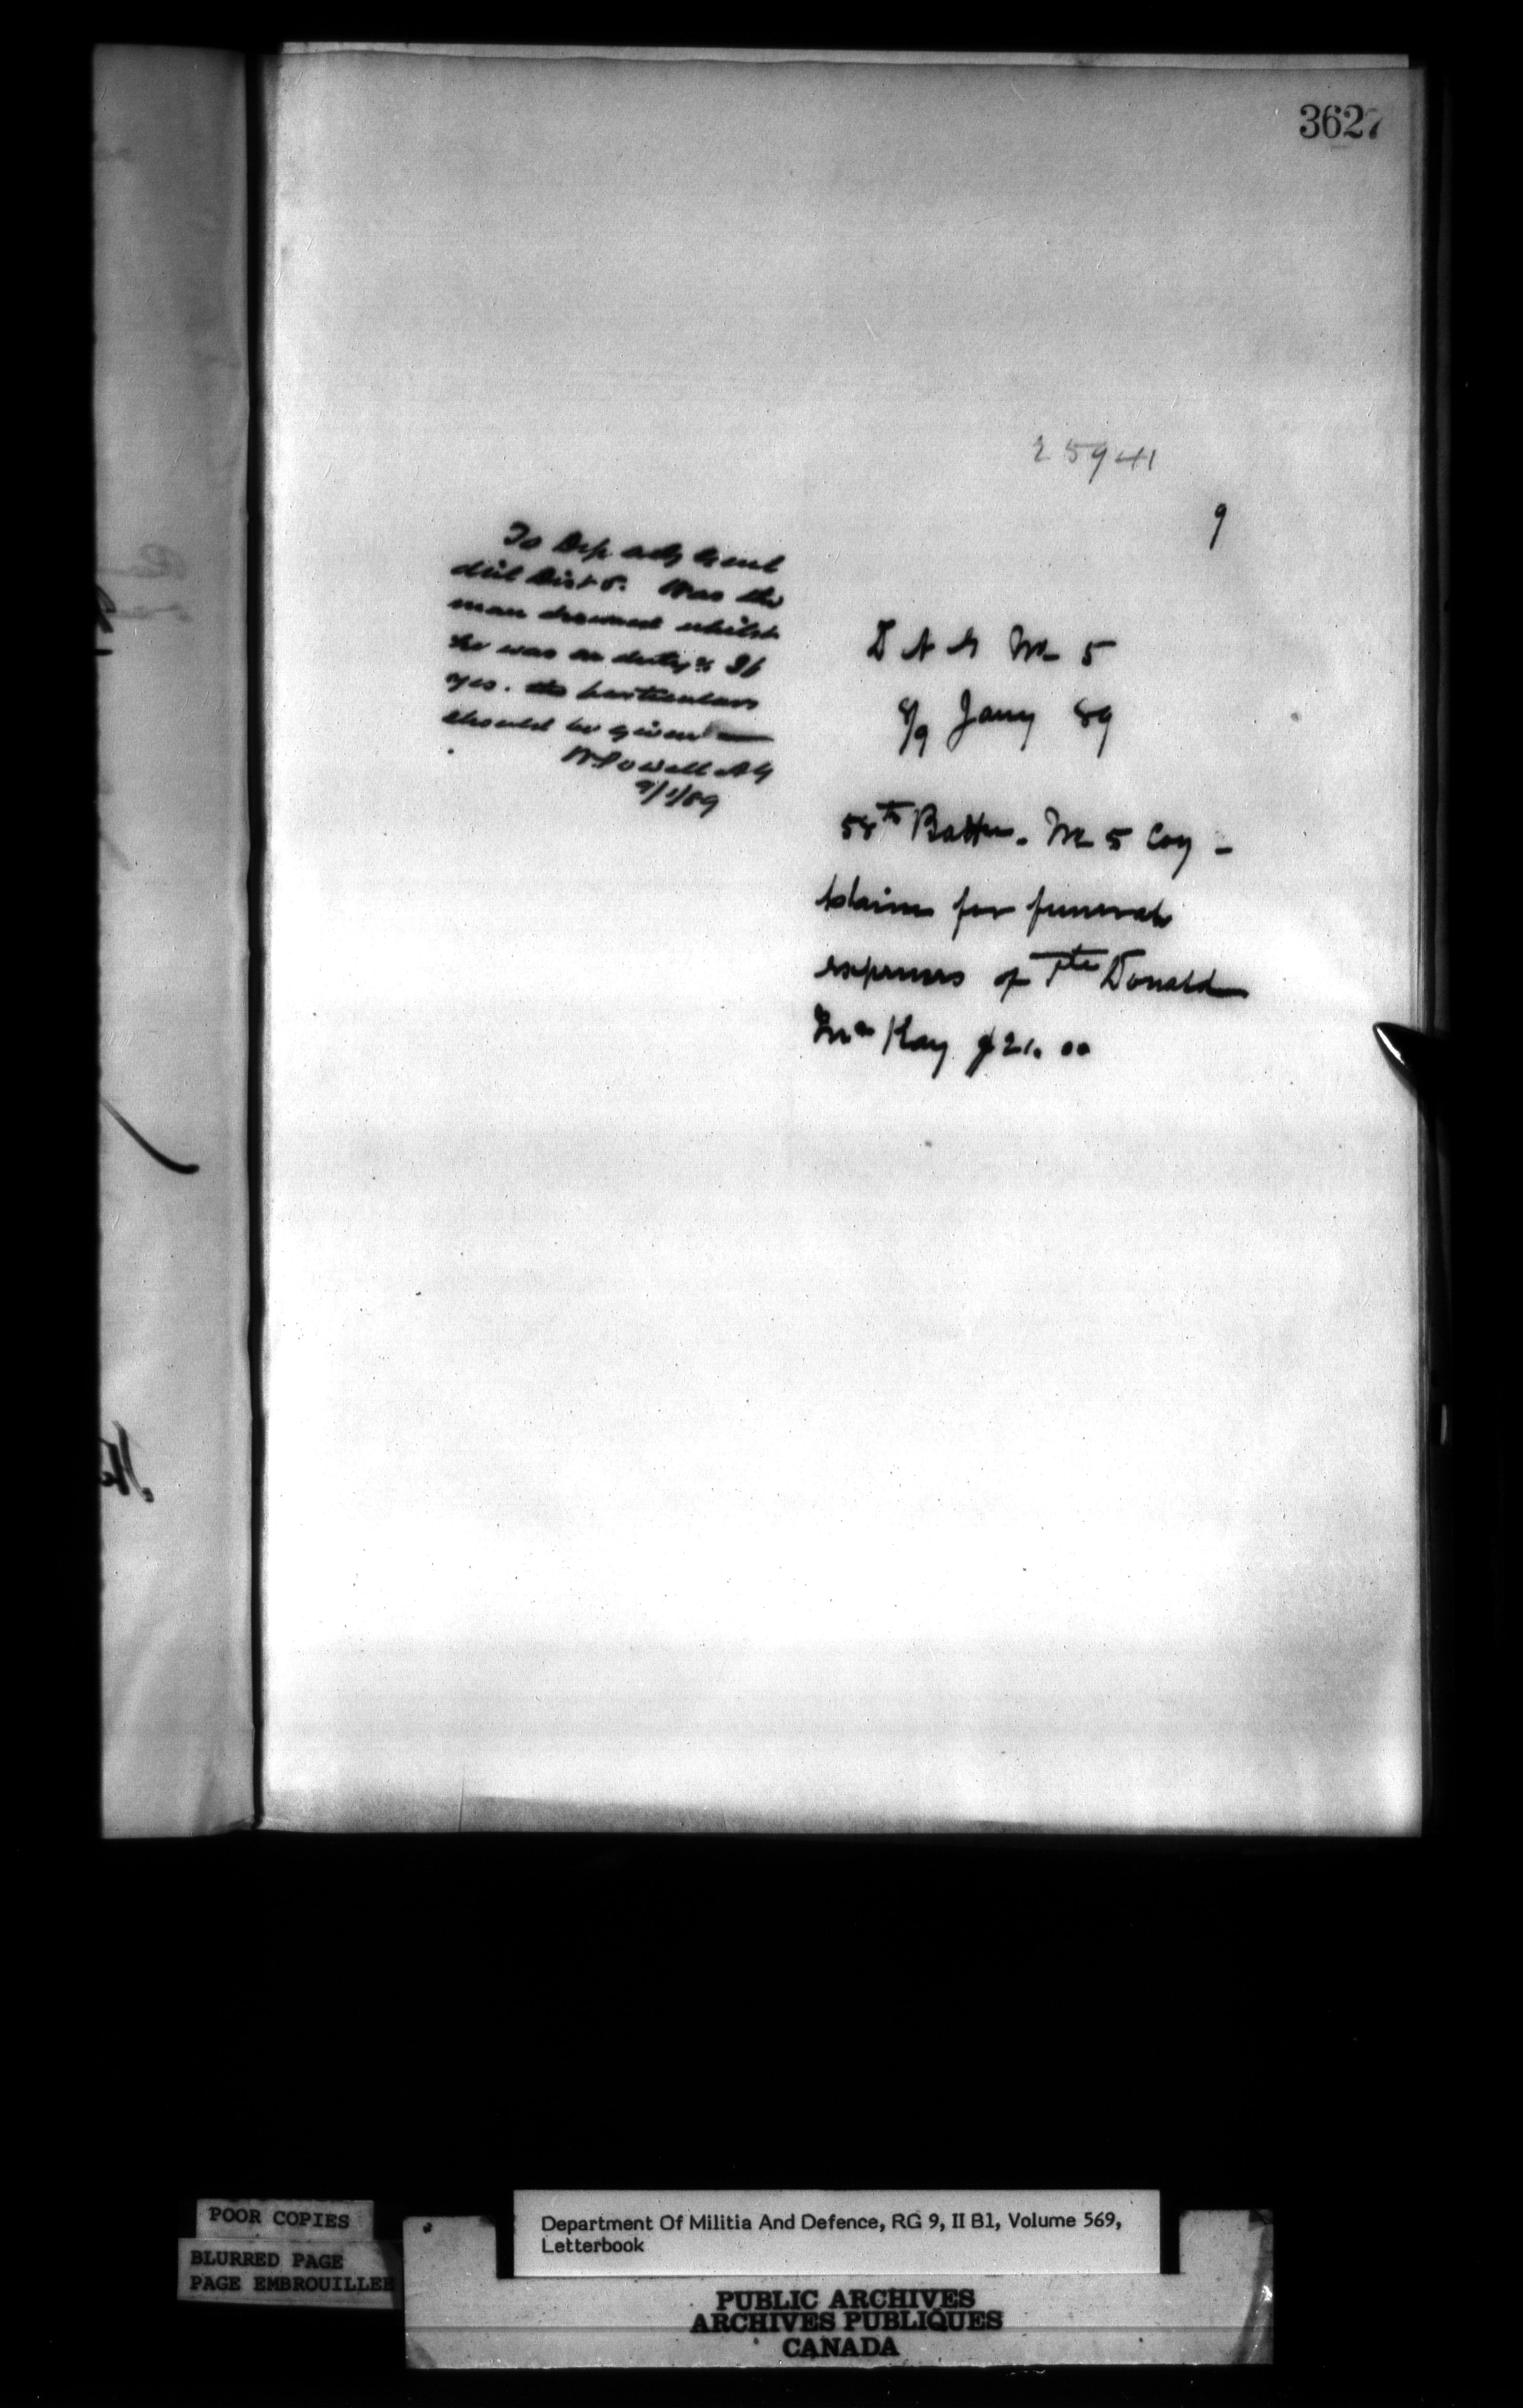 3627
25941
9
To Dep Adj Genl
Mil Dist 5. Was the
man drowned whilst
he was on duty? If
yes. the particulars
should be given —
W Powell AG
9/1/89
D A G No 5
8/9 Jany 89
58th Battn. No 5 Coy -
Claim for funeral
expenses of Pte Donald
McKay $21.00
POOR COPIES
BLURRED PAGE
PAGE EMBROUILLEE
Department Of Militia And Defence, RG 9, II B1, Volume 569,
Letterbook
PUBLIC ARCHIVES
ARCHIVES PUBLIQUES
CANADA